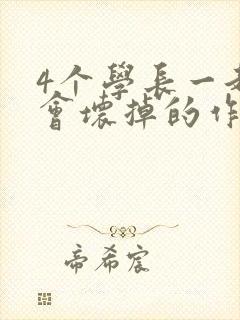 4个學長一
會壞掉的作
帝希宸